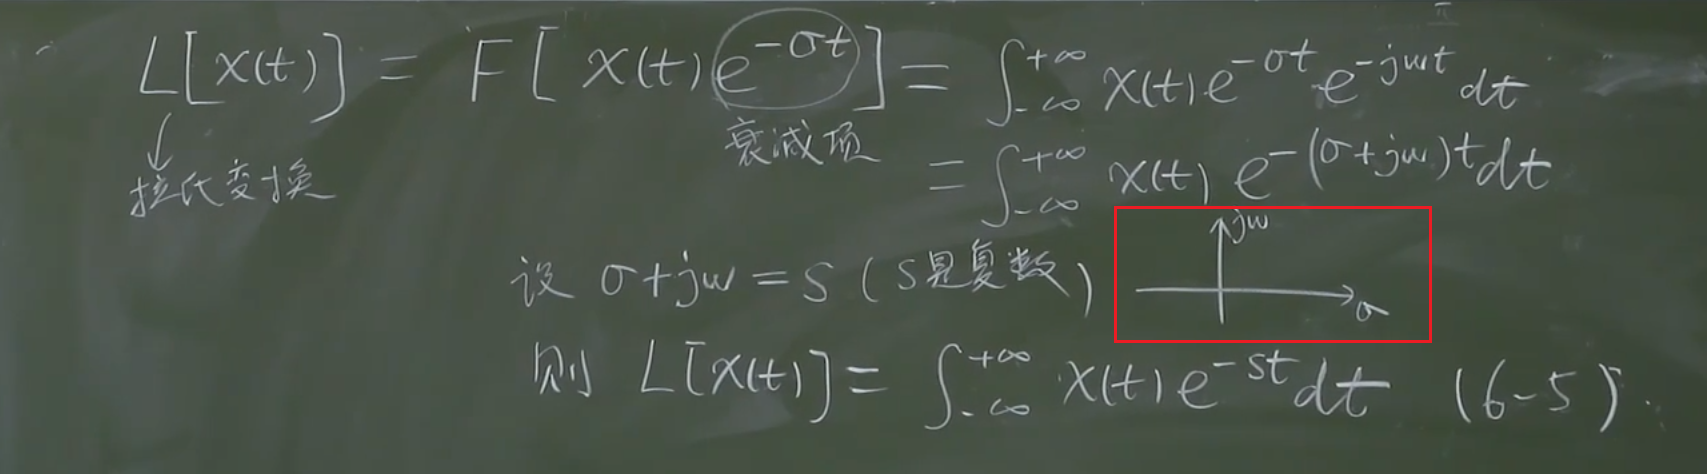 L[x(t)] = F[x(t)e^{-σt}] = ∫_{-∞}^{+∞} x(t)e^{-σt}e^{-jωt}dt
拉氏变换
衰减项
= ∫_{-∞}^{+∞} x(t)e^{-(σ+jω)t}dt
设 σ+jω=s (s是复数)
jω
σ
则 L[x(t)] = ∫_{-∞}^{+∞} x(t)e^{-st}dt (6-5).